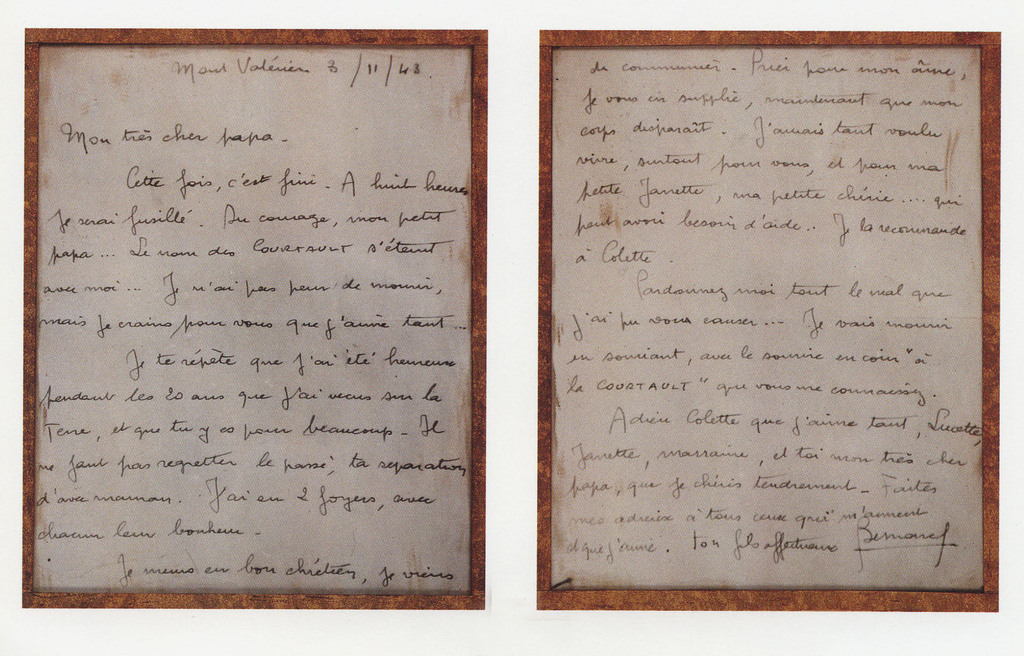 Mont Valérien 3/11/43.
Mon très cher papa -
Cette fois, c'est fini - A huit heures
je serai fusillé. Du courage, mon petit
papa... Le nom des COURTAULT s'éteint
avec moi... Je n'ai pas peur de mourir,
mais je crains pour vous que j'aime tant...
Je te répète que j'ai été heureux
pendant les 20 ans que j'ai vécus sur la
Terre, et que tu y es pour beaucoup - Il
ne faut pas regretter le passé, ta séparation
d'avec maman. J'ai eu 2 foyers, avec
chacun leur bonheur -
Je meurs en bon chrétien, je viens
de communier - Priez pour mon âme,
je vous en supplie, maintenant que mon
corps disparaît. J'aurais tant voulu
vivre, surtout pour vous, et pour ma
petite Janette, ma petite chérie.... qui
peut avoir besoin d'aide.. Je la recommande
à Colette.
Pardonnez moi tout le mal que
j'ai pu vous causer... Je vais mourir
en souriant, avec le sourire en coin "à
la COURTAULT" que vous me connaissez.
Adieu Colette que j'aime tant, Lucette,
Janette, marraine, et toi mon très cher
papa, que je chéris tendrement - Faites
mes adieux à tous ceux qui m'aiment
et que j'aime. Ton fils affectueux Bernard